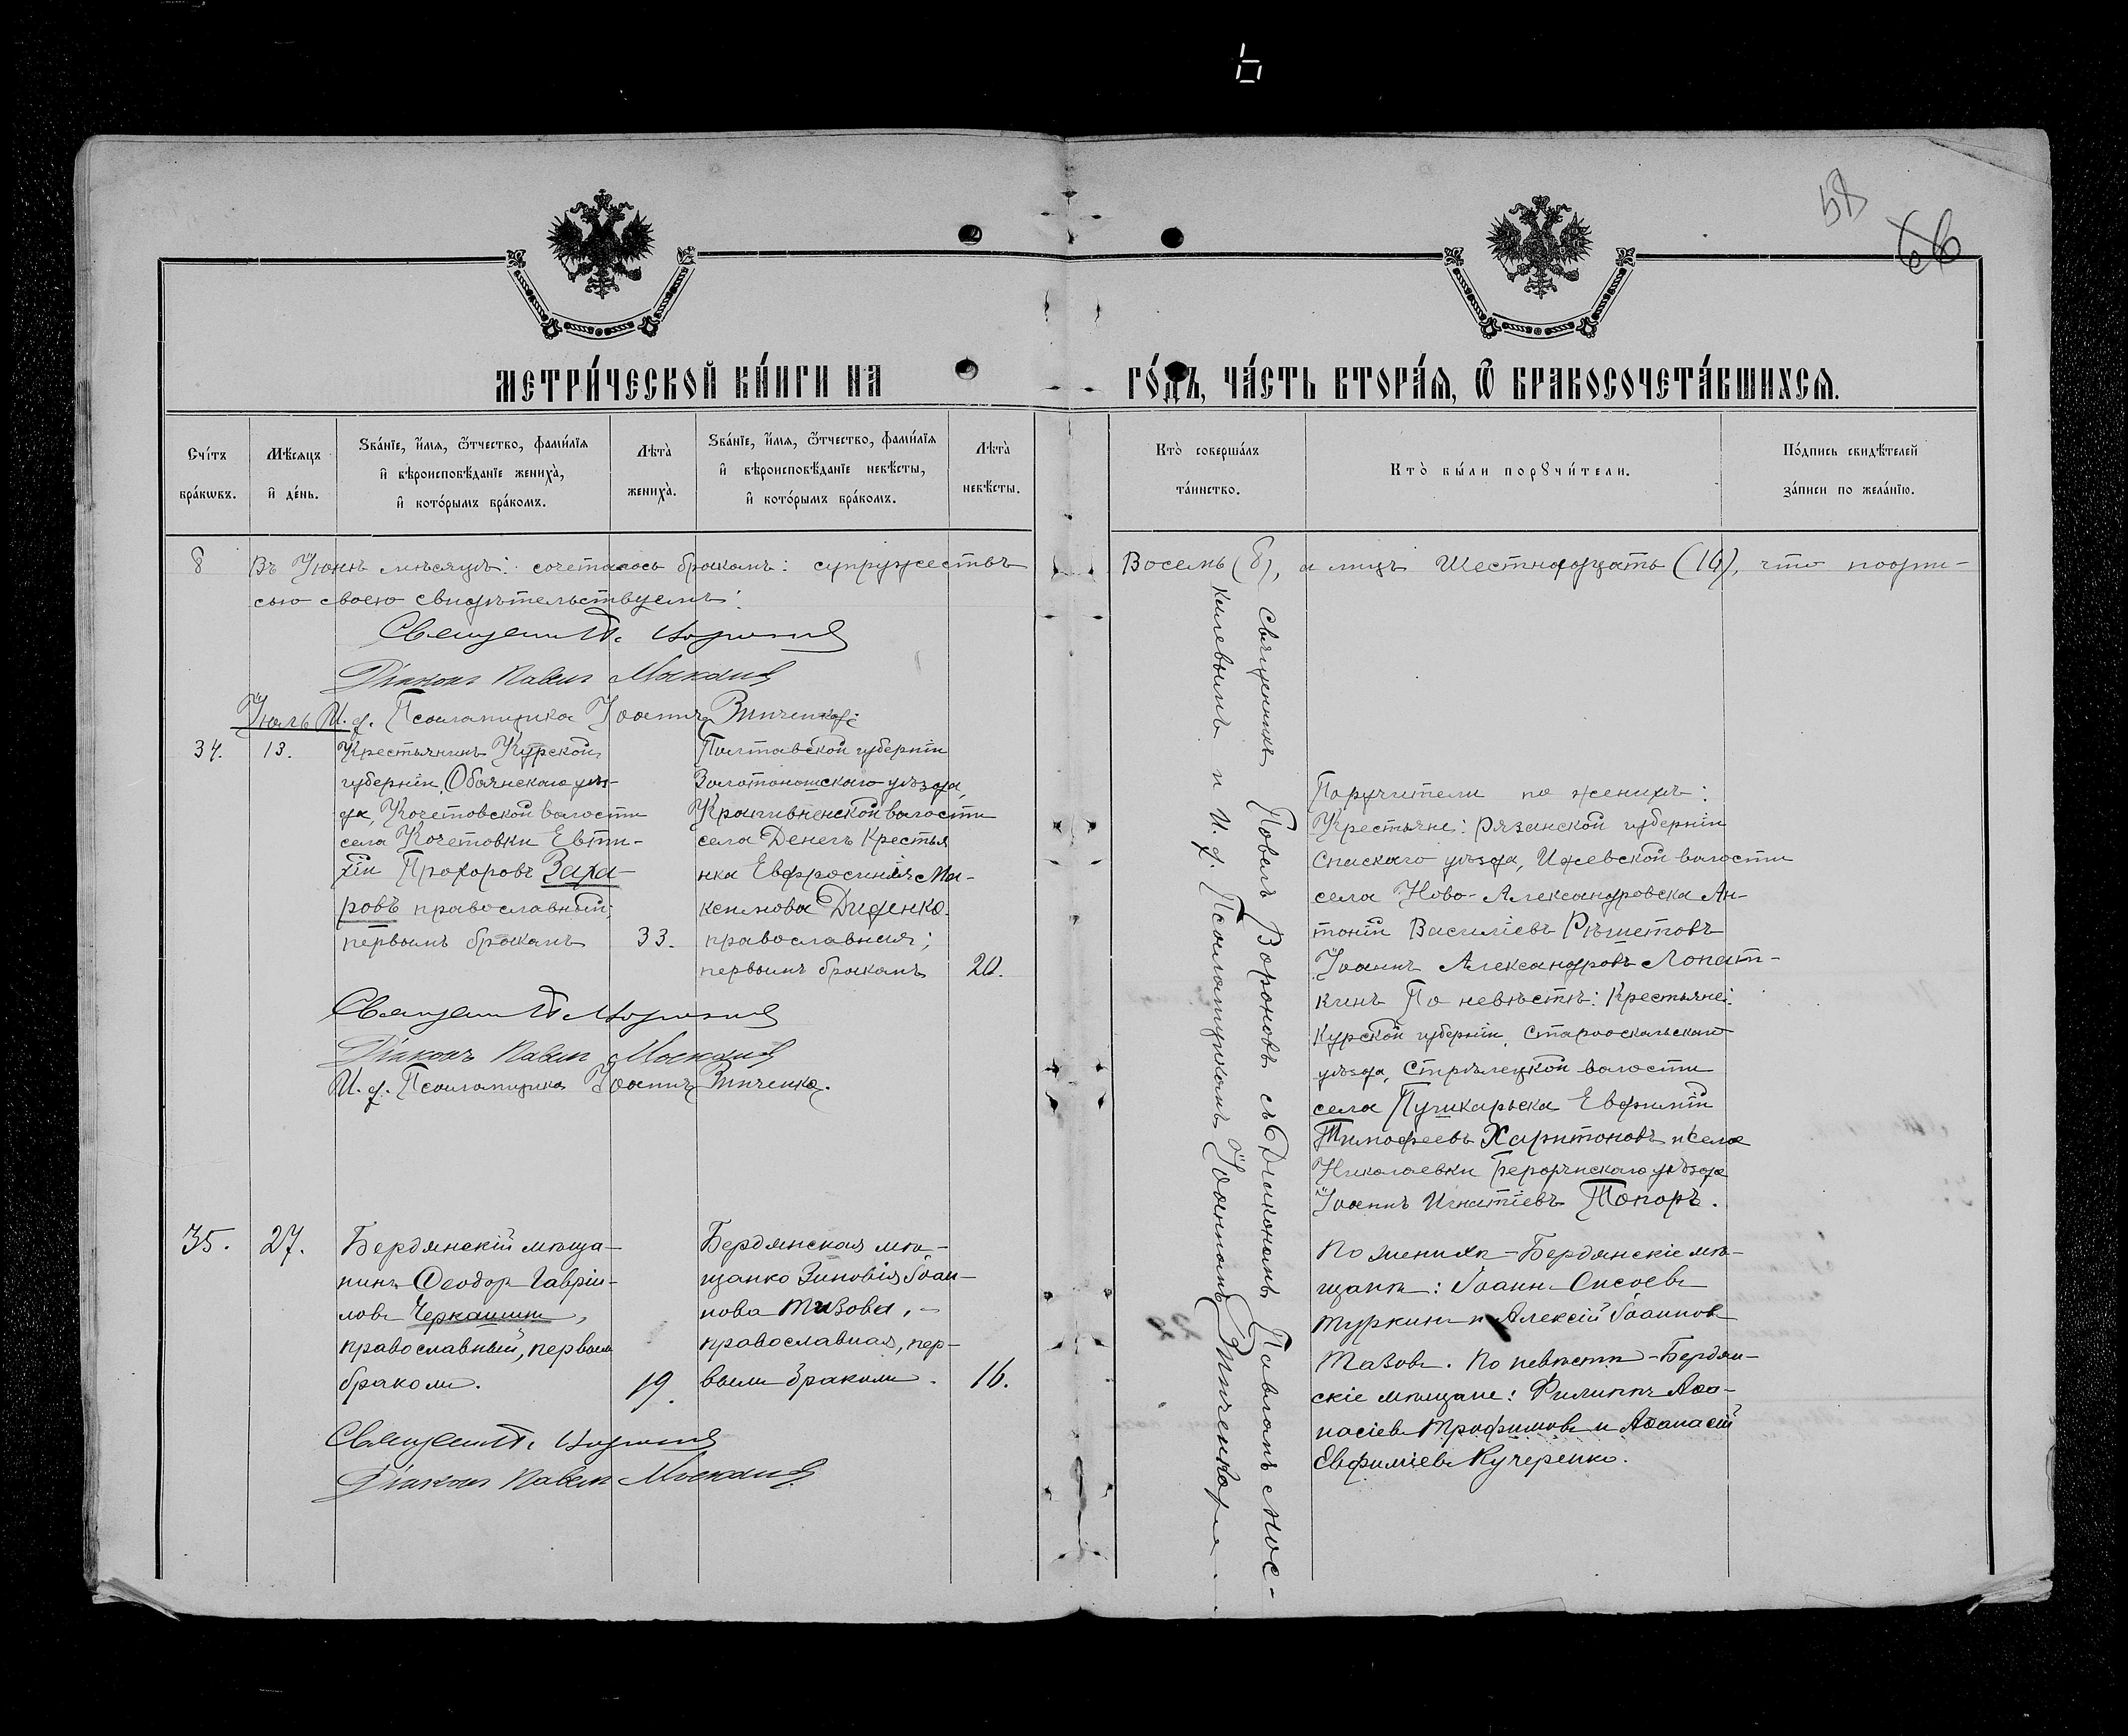 58
66
МЕТРИ́ЧЕСКОЙ КНИ́ГИ НА
ГО́ДЪ, ЧА́СТЬ ВТОРА́Я, Ѿ БРАКОСОЧЕТА́ВШИХСЯ.
Счётъ бра́ковъ.
Мѣ́сяцъ и҆ де́нь.
Ѕва́нїе, и҆́мя, ѻ҆́тчество, фами́лїя и҆ вѣроисповѣ́данїе жениха̀, и҆ кото́рымъ бра́комъ.
Лѣта̀ жениха̀.
Ѕва́нїе, и҆́мя, ѻ҆́тчество, фами́лїя и҆ вѣроисповѣ́данїе невѣ́сты, и҆ кото́рымъ бра́комъ.
Лѣта̀ невѣ́сты.
Кто̀ соверша́лъ та́инство.
Кто̀ бы́ли порꙋчи́тели.
По́дпись свидѣ́телей за́писи по жела́нїю.
8 Въ Іюнѣ мѣсяцѣ: сочеталось бракомъ: супружествъ
Восемь (8), а лицъ Шестнадцать (16), что подпи-
сью своею свидѣтельствуемъ:
Священ. П.
Діаконъ Павелъ
Іюль
И. д. Псаломщика Іоаннъ Зинченко
34.
13.
Крестьянинъ Курской
губерніи, Обоянскаго уѣз-
да, Кочетовской волости
села Кочетовки Евти-
хій Прохоровъ Заха-
ровъ православный;
первымъ бракомъ
33.
Полтавской губерніи
Золотоношскаго уѣзда,
Кропивненской волости
села Денегъ Крестья
нка Евфросинія Ма-
ксимова Диденко.
православная;
первымъ бракомъ
20.
Священ. П.
Діаконъ Павелъ
И. д. Псаломщика Іоаннъ Зинченко.
Священникъ Павелъ Вороновъ съ Діакономъ Павломъ Мос-
калевымъ и И. д. Псаломщикомъ Іоанномъ Зинченкомъ.
Поручители по женихѣ:
Крестьяне: Рязанской губерніи
Спаскаго уѣзда, Ижевской волости
села Ново-Александровска Ан-
тоній Василіевъ Рѣшетовъ
Іоаннъ Александровъ Лопат-
кинъ По невѣстѣ: Крестьяне:
Курской губерніи, Старооскальскаго
уѣзда, Стрѣлецкой волости
села Пушкарьска Евфимій
Тимофеевъ Харитоновъ и села
Николаевки Бердянскаго уѣзда
Іоаннъ Игнатіевъ Топоръ.
35.
27.
Бердянскій мѣща-
нинъ Ѳеодоръ Гавріи-
ловъ Черкашинъ,
православный, первымъ
бракомъ.
19.
Бердянская мѣ-
щанка Зиновія Іоан-
нова Тазова,
православная, пер-
вымъ бракомъ.
16.
Священ. П.
Діаконъ Павелъ
По женихѣ – Бердянскіе мѣ-
щане: Іоаннъ Сисоевъ
Туркинъ и Алексій Іоанновъ
Тазовъ. По невѣстѣ – Бердян-
скіе мѣщане: Филиппъ Аѳа-
насіевъ Трофимовъ и Аѳанасій
Евфиміевъ Кучеренко.